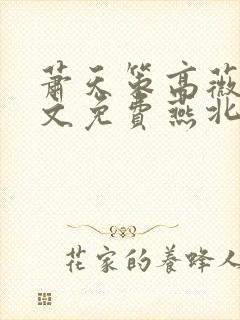 萧天策高薇
文免费燕北
花家的養蜂人